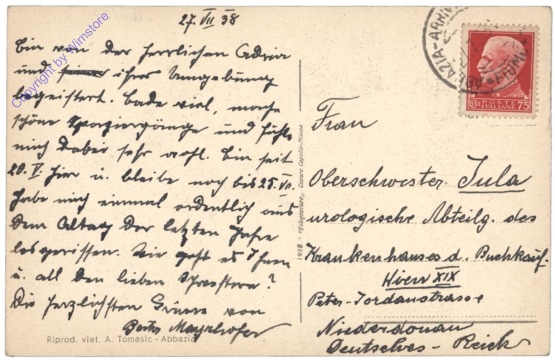 27. VII 38
Bin von der herrlichen Adria
und ihrer Umgebung
begeistert. Bade viel, mache
schöne Spaziergänge und fühle
mich dabei sehr wohl. Bin seit
20. V. hier u. bleibe noch bis 25. VII.
Habe mich einmal ordentlich aus
dem Alltag der letzten Jahre
losgerissen. Wie geht es Ihnen
u. all den lieben Schwestern?
Die herzlichsten Grüsse von
Mayerhofer
Riprod. viet. A. Tomasic - Abbazia
1938
Cesare Capello - Milano
ABBAZIA
75
Frau
Oberschwester Jula
urologische Abteilg. des
Krankenhauses d. Buchkauf-
Wien XIX
Peter-Jordanstrasse
Niederdonau
Deutsches - Reich
Copyright by Wimstore